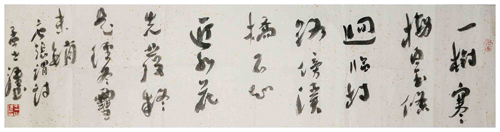 一樹寒
梅白玉條
迥臨村
路傍溪
橋不知
近水花
先發疑
是經冬雪
未銷
唐張謂詩